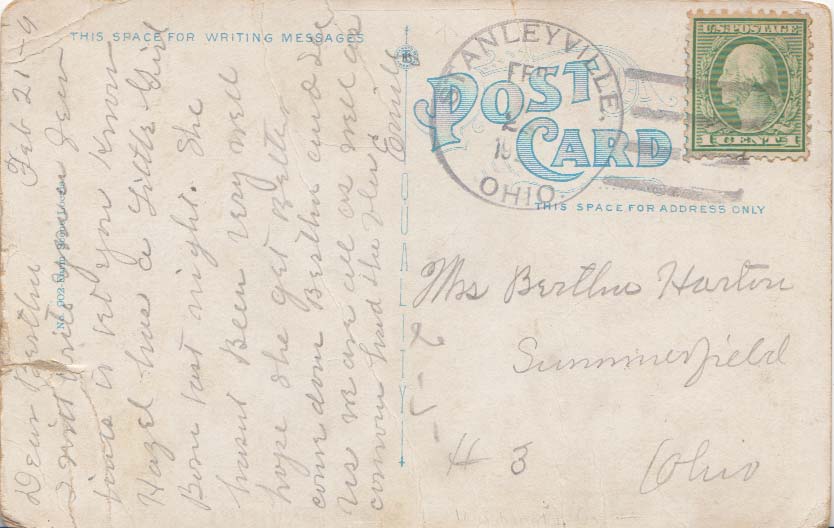 THIS SPACE FOR WRITING MESSAGES
Feb 21-19
Dear Bertha
I will write you a few
lines to let you know
Hazel has a Little Girl
Born last night. She
hasnt Been very well
hope she gets Better
come down Bertha and see
us we are all as well as
common had the
Emile
No. 902
QUALITY
POST
CARD
STANLEYVILLE,
FEB
2
19
OHIO.
U.S. POSTAGE
1 CENT 1
THIS SPACE FOR ADDRESS ONLY
Mrs Bertha Harton
Summerfield
# 3
Ohio